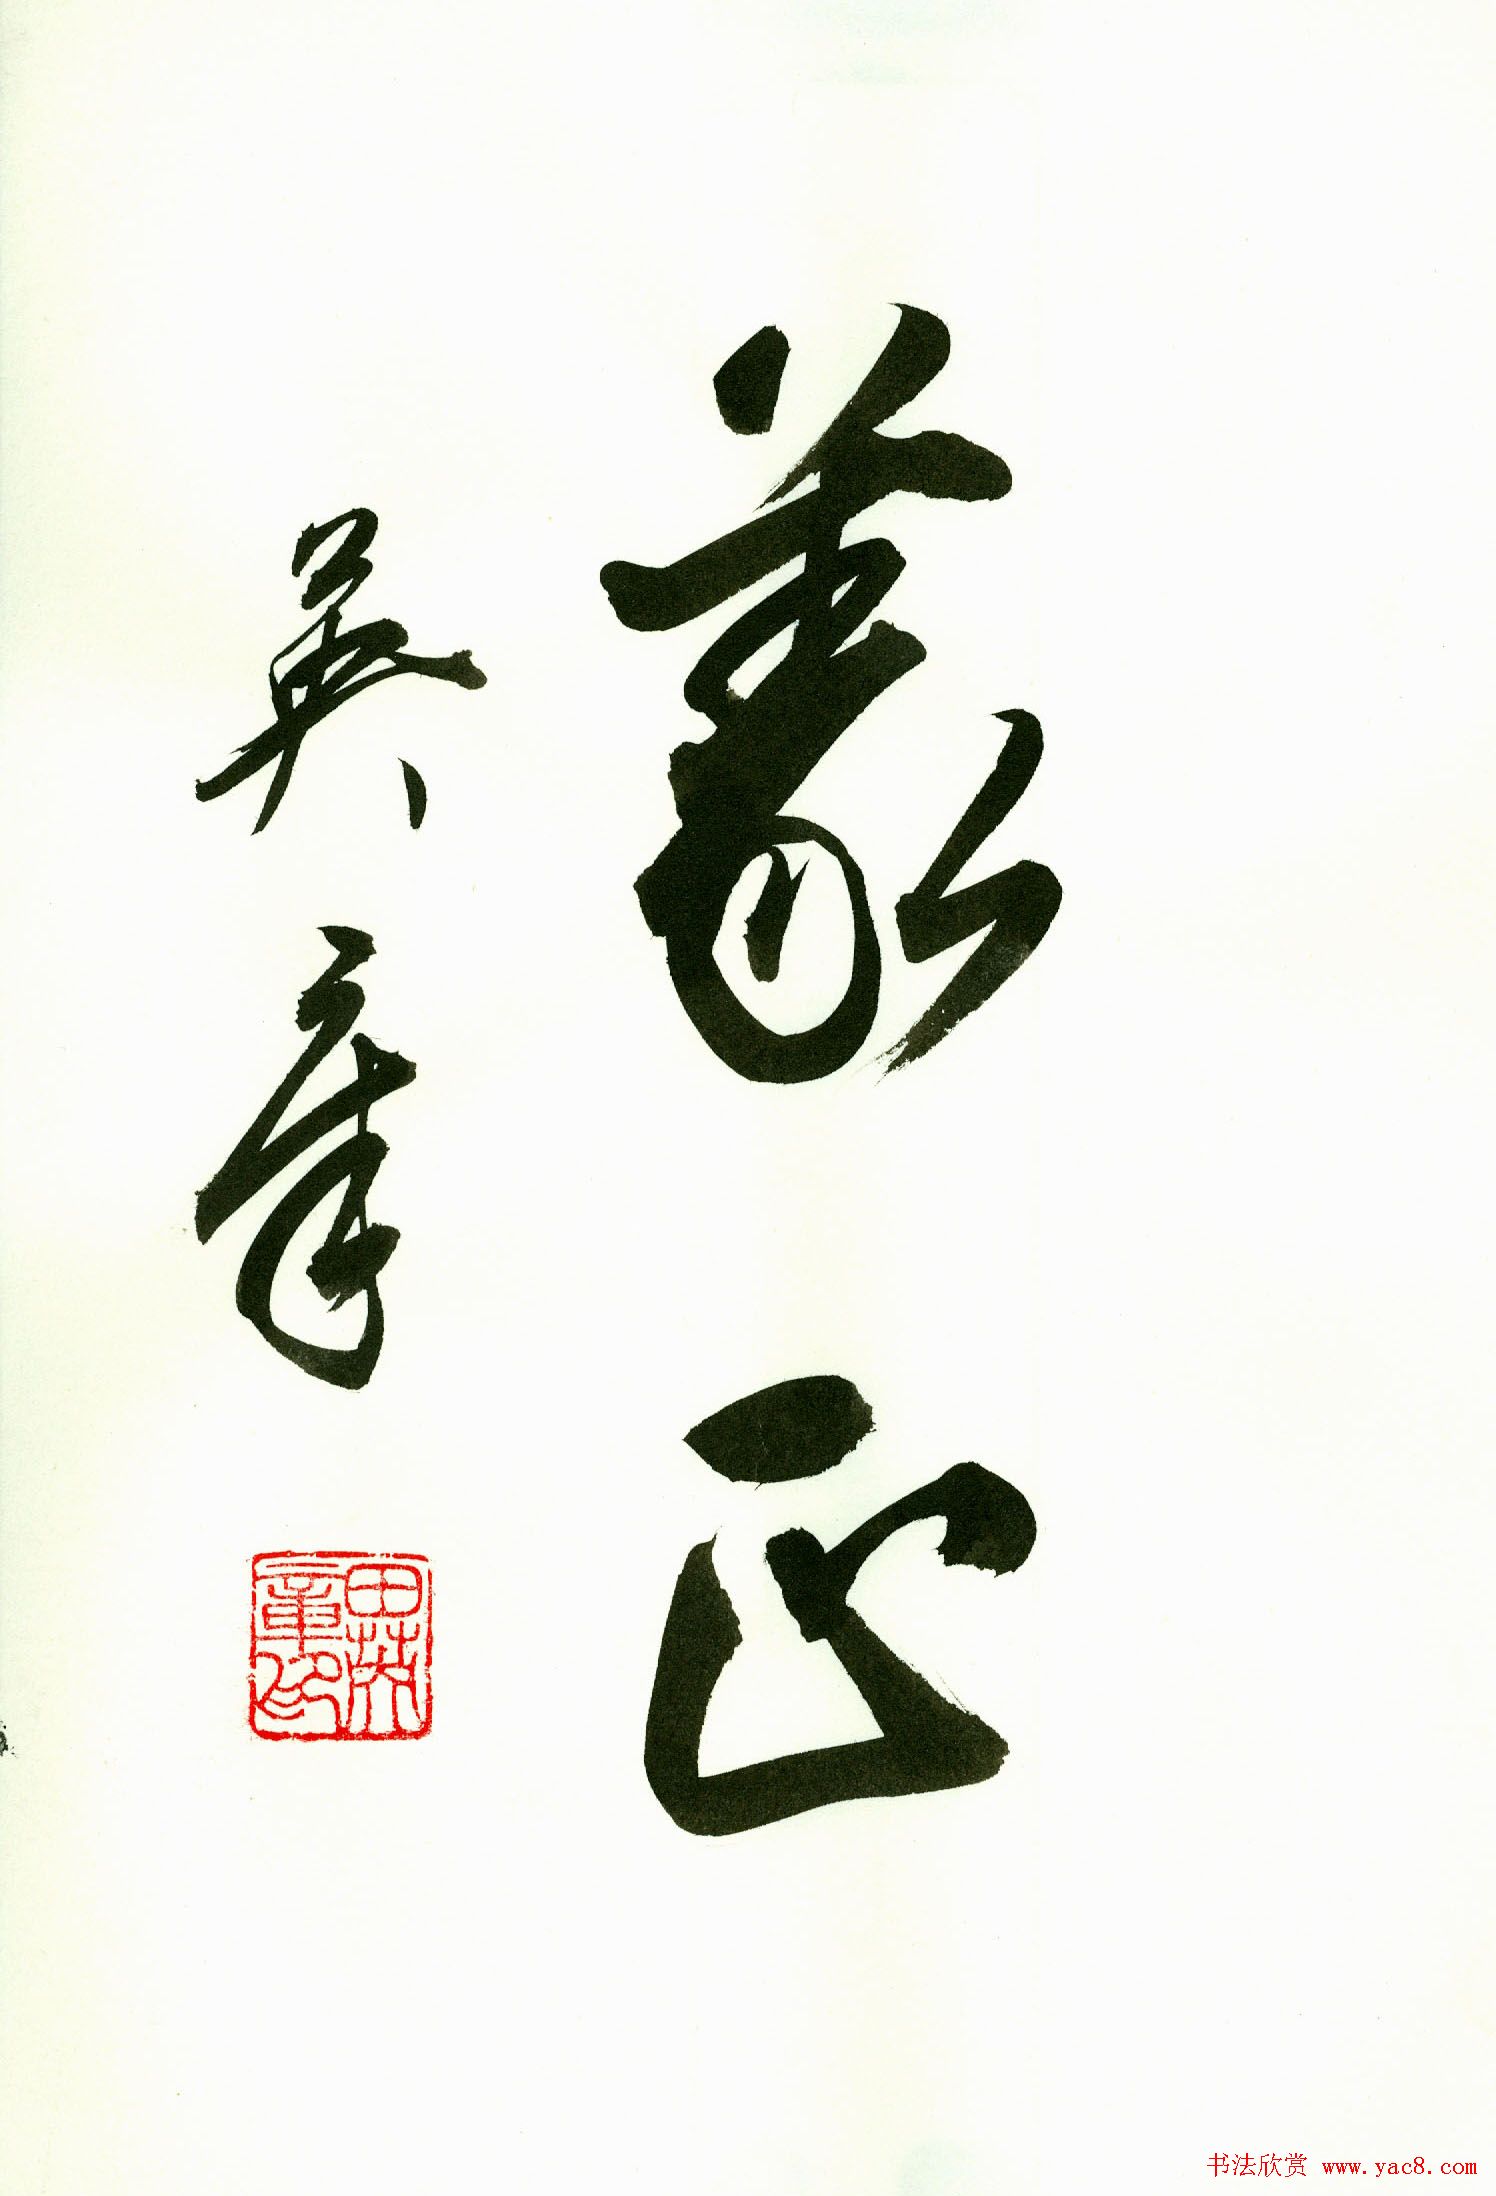 蒙正
英章
田英
章印
书法欣赏 www.yac8.com